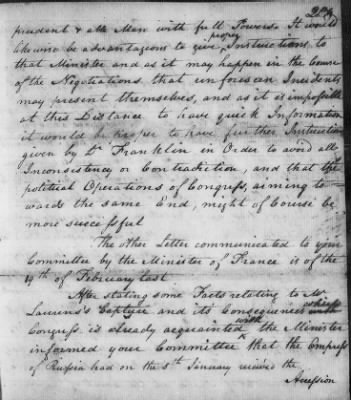 prudent & able Man with full Powers. It would
likewise be advantageous to give proper Instructions to
that Minister and as it may happen in the Course
of the Negotiations that unforeseen Incidents
may present themselves, and as it is impossible
at this Distance to have quick Information
it would be proper to have further Instructions
given by Dr Franklin in Order to avoid all
Inconsistency or Contradiction, and that the
political Operations of Congress, aiming to
wards the same End, might of Course be
more successful
The other Letter communicated to your
Committee by the Minister of France is of the
19th of February last
After stating some Facts relating to Mr
Laurens's Capture and its Consequences
Congress is already acquainted with the Minister
informed your Committee that the Empress
of Russia had on the 5th January received the
Accession